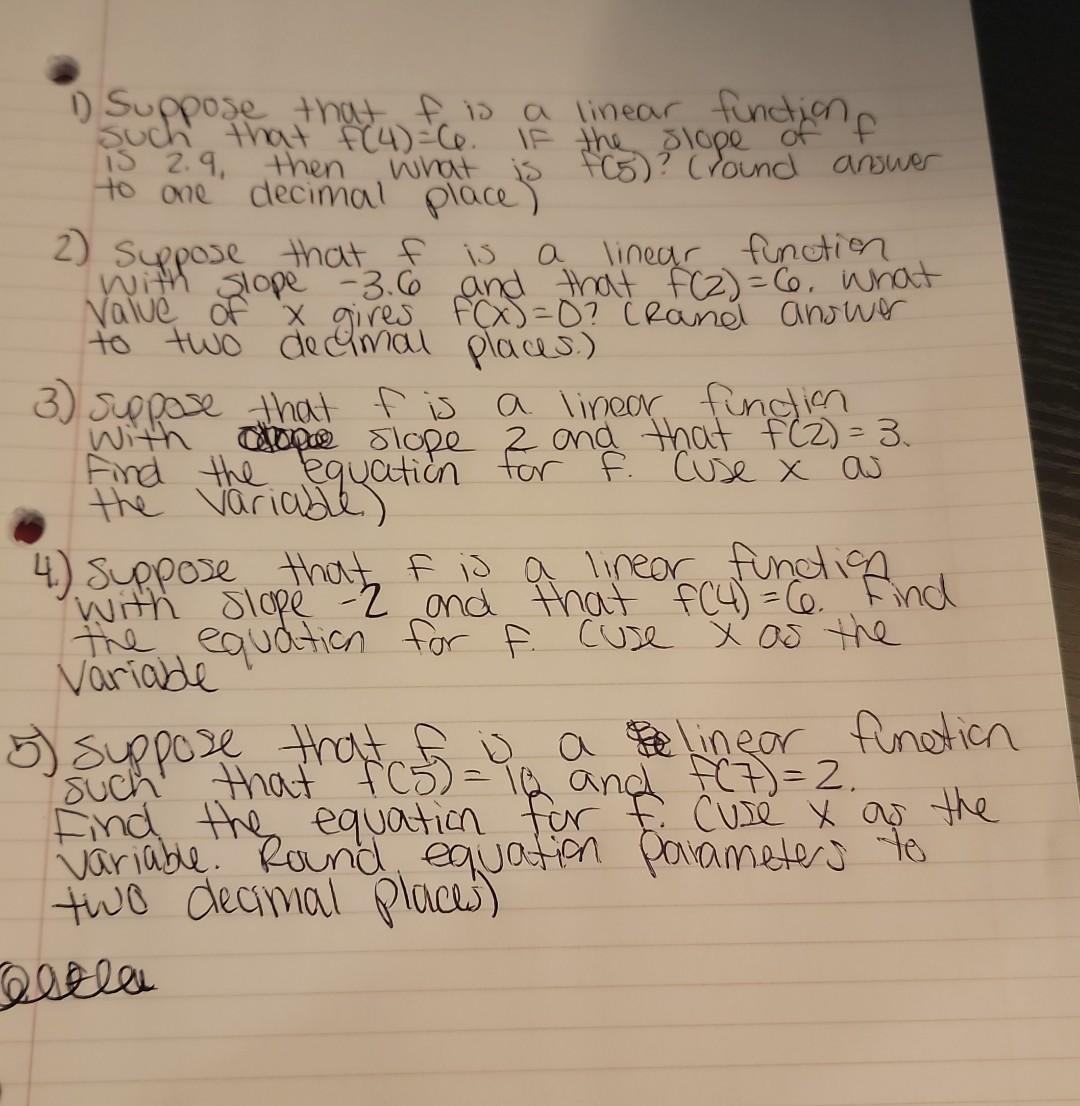 1) Suppose that f is a linear function
such that f(4)=6. IF the slope of f
is 2.9, then what is f(5)? (round answer
to one decimal place)
2) Suppose that f is a linear function
with slope -3.6 and that f(2)=6. what
Value of x gives f(x)=0? (Round answer
to two decimal places.)
3.) suppose that f is a linear function
with slope 2 and that f(2)=3.
Find the equation for f. (use x as
the variable.)
4.) suppose that f is a linear function
with slope -2 and that f(4)=6. Find
the equation for f. (use x as the
variable
5) suppose that f is a linear function
such that f(5)= and f(7)=2.
Find the equation for f. (use x as the
variable. Round equation parameters to
two decimal places)